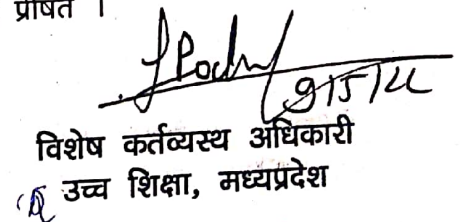 प्रेषित ।
9/5/22
विशेष कर्तव्यस्थ अधिकारी
उच्च शिक्षा, मध्यप्रदेश